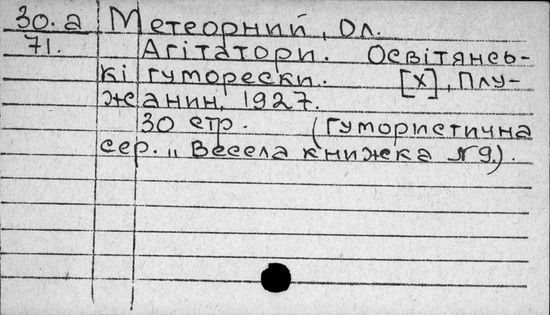 30.а Метеорний, Ол.
71. Агітатори. Освітянсь-
кі гуморески. [X], Плу-
жанин, 1927.
30 стр. (Гумористична
сер. „Весела книжка №9.).